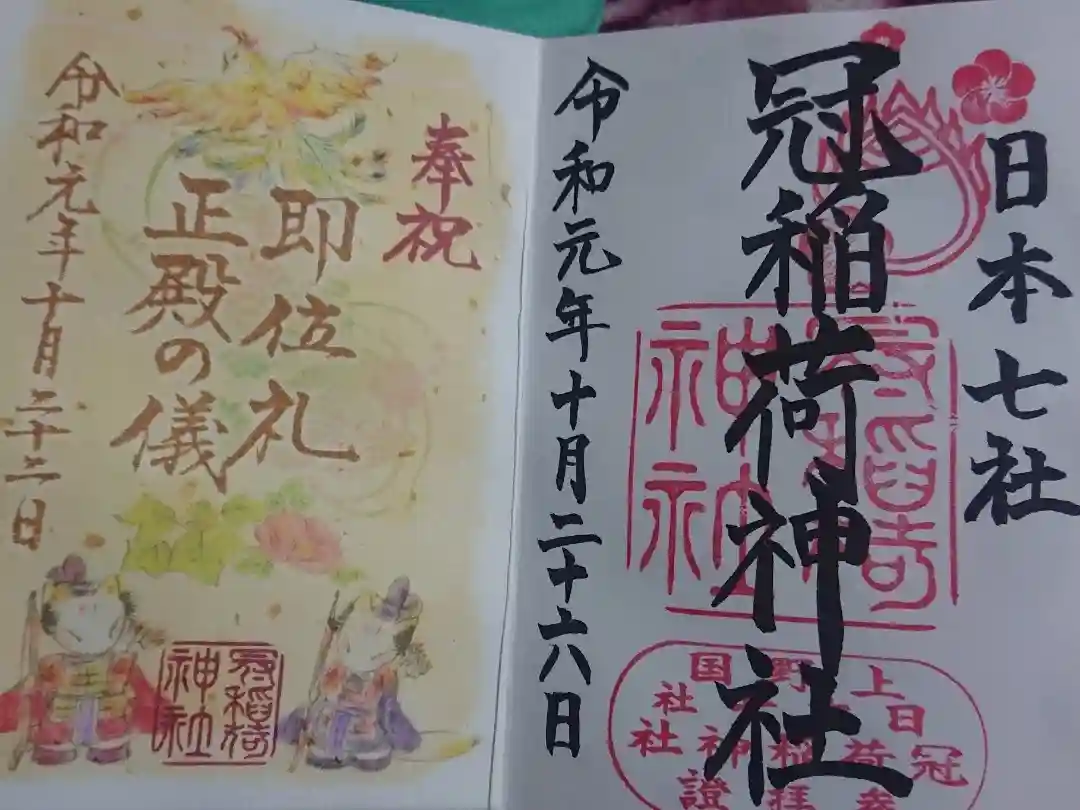 日本七社
冠稲荷神社
冠稲荷神社
上野国
冠稲荷神社
参拝證
令和元年十月二十六日
奉祝
即位礼
正殿の儀
令和元年十月二十二日
冠稲荷神社